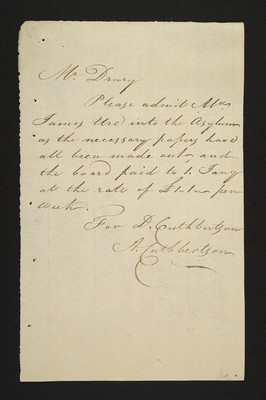 Mr. Drury
Please admit Mrs
James Ure into the Asylum
as the necessary papers have
all been made out and
the board paid to 1. Jany
at the rate of £1.1.. per
week.
For D. Cuthbertson
A. Cuthbertson